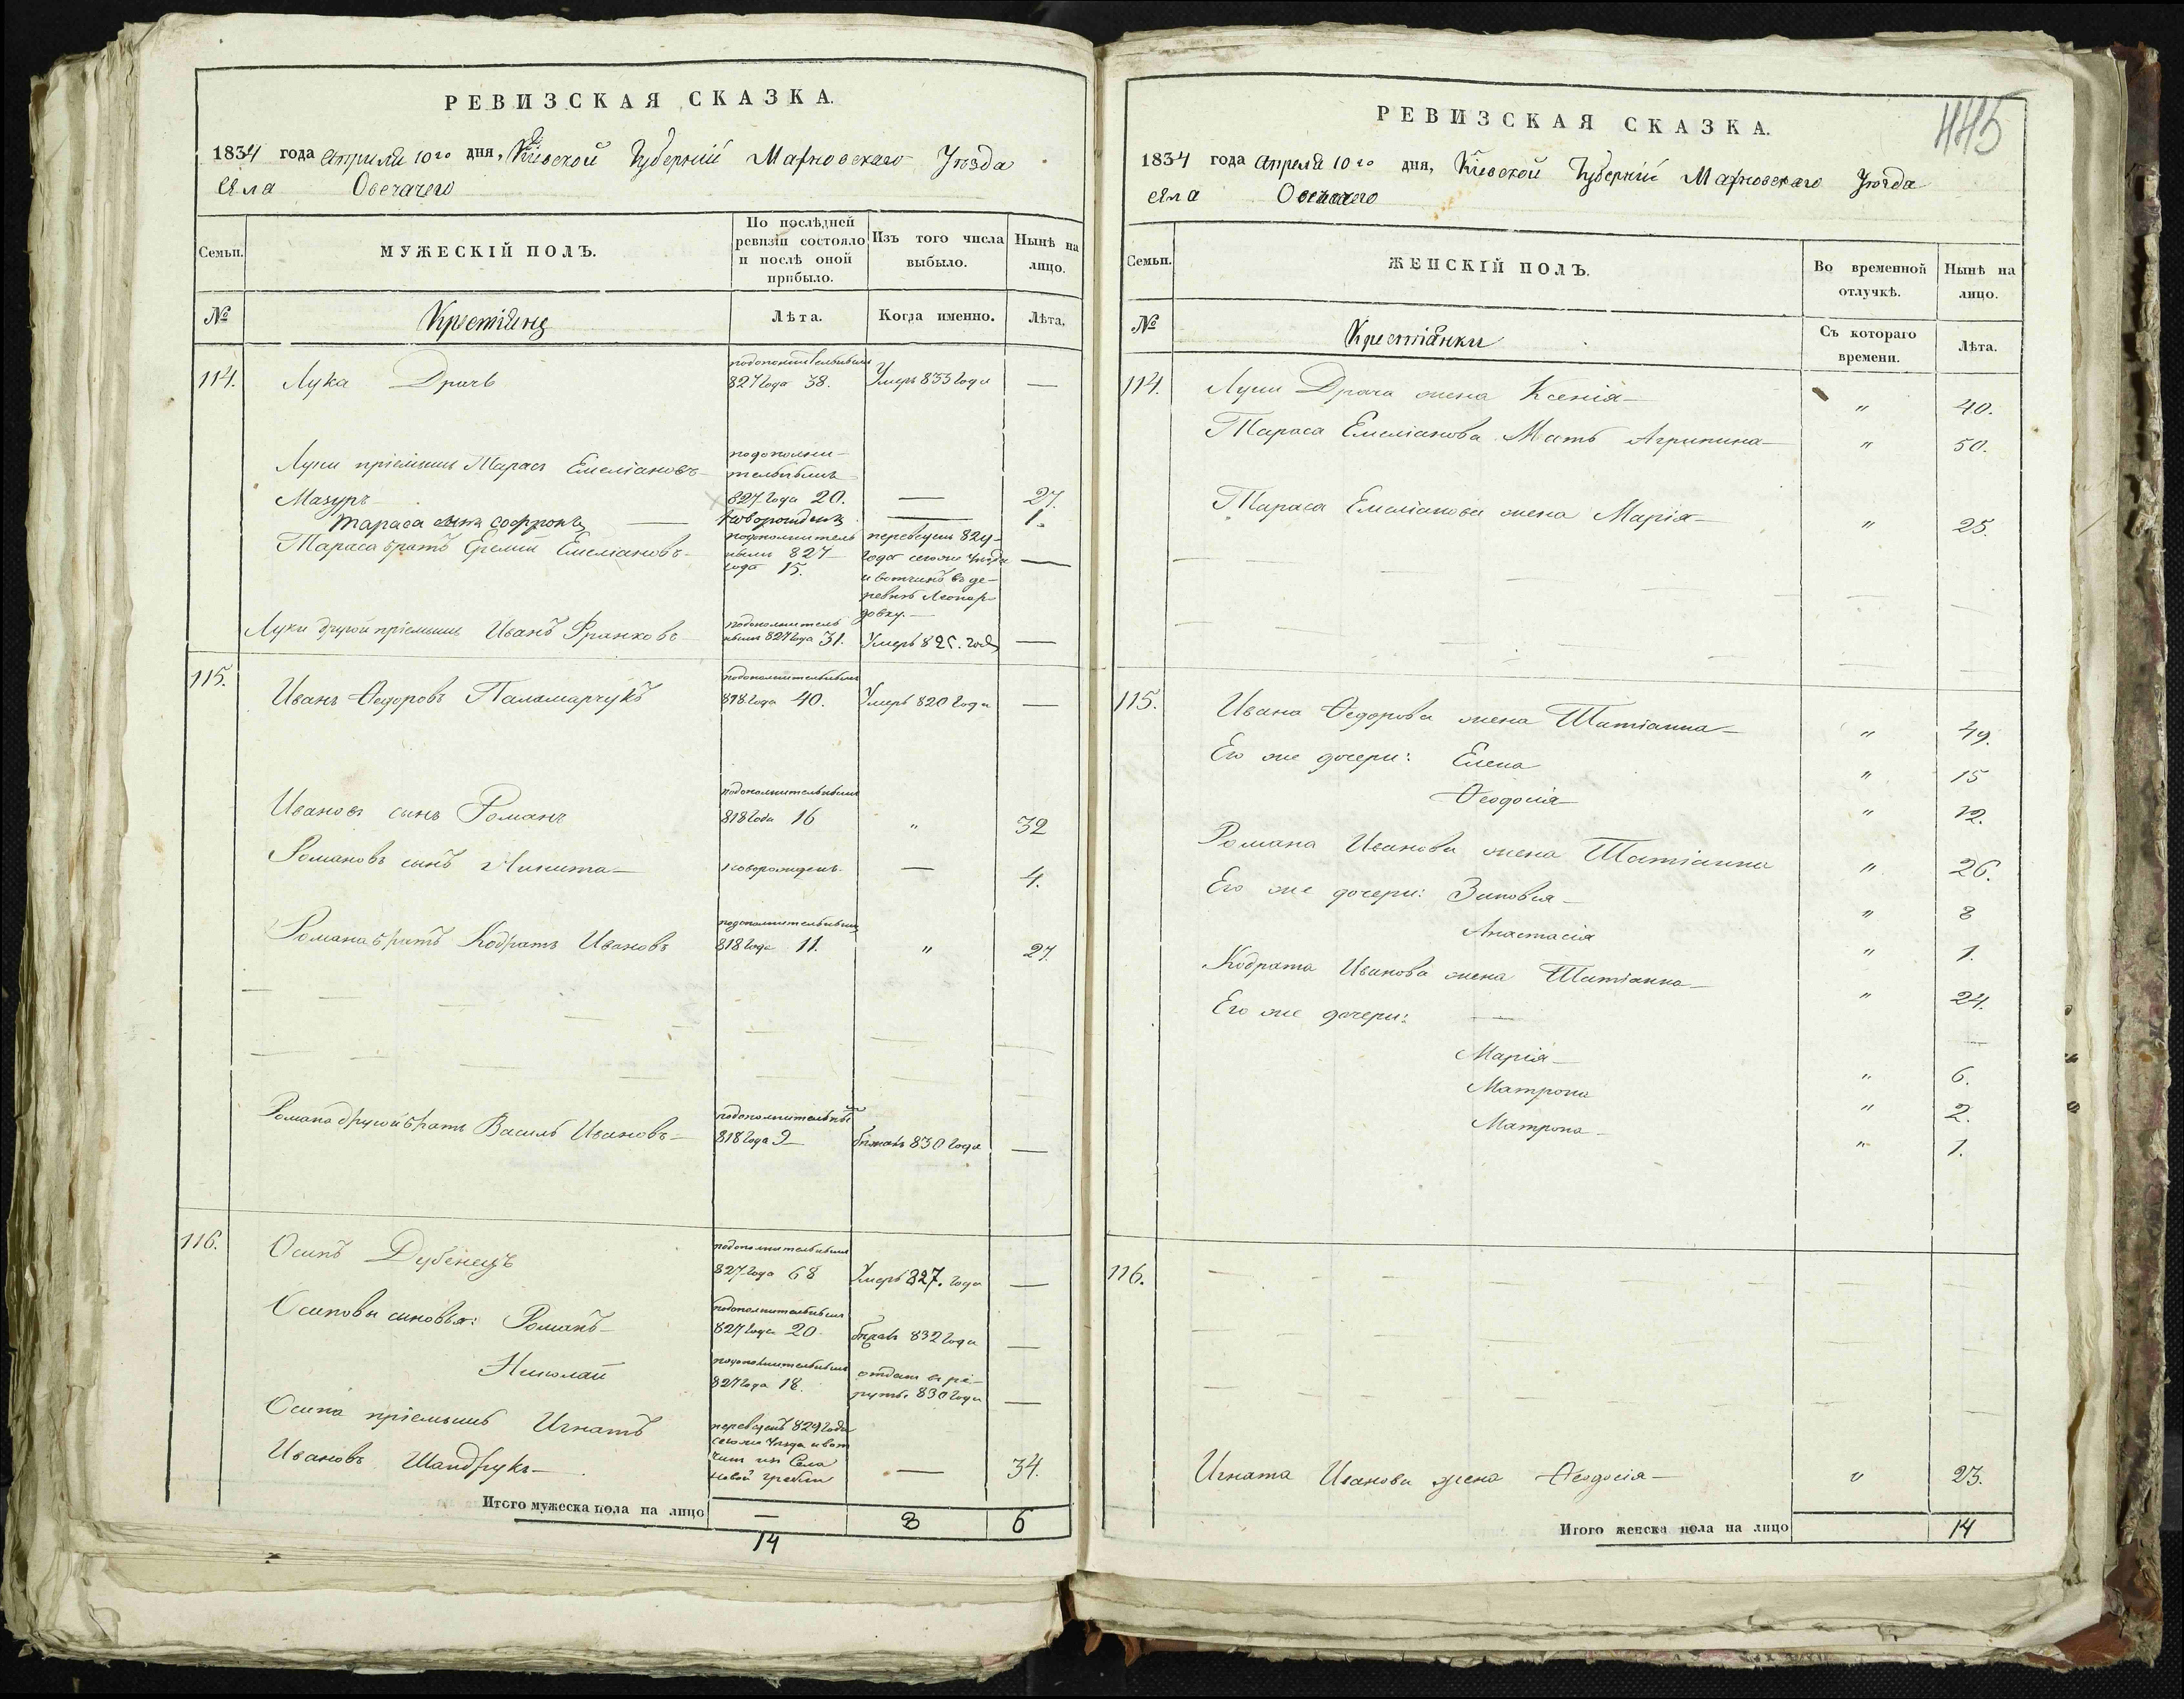 РЕВИЗСКАЯ СКАЗКА.
1834 года Апреля 10го дня, Кіевской Губерніи Махновскаго Уѣзда
села Овечачего
Семьи.
МУЖЕСКІЙ ПОЛЪ.
По послѣдней ревизіи состояло и послѣ оной прибыло.
Изъ того числа выбыло.
Нынѣ на лицо.
№
Крестіяне
Лѣта.
Когда именно.
Лѣта.
114. Лука Драчь
подополнительнымъ 827 года 38. Умеръ 833 года —
Луки пріемышъ Тарасъ Емеліановъ
подополни-
тельнымъ
Мазуръ 827 года 20. — 27.
Тараса сынъ Софронъ — новорожденъ — 1.
Тараса братъ Емеліановъ
подополнитель
нымъ 827
года 15.
переведенъ 829
года сегоже Уѣзда —
и вотчины въ де-
ревню Леонар-
довку.
Луки другой пріемышъ Иванъ Франковъ
подополнитель
нымъ 827 года 31. Умеръ года —
115. Иванъ Федоровъ Паламарчукъ
подополнительнымъ 818 года 40. Умеръ 820 года —
Ивановъ сынъ Романъ
подополнительнымъ 818 года 16 " 32
Романовъ сынъ Никита новорожденъ — 4.
Романа братъ Кодратъ Ивановъ
подополнительнымъ 818 года 11. " 27.
Романа другой братъ Василь Ивановъ
818 года 9 бѣжалъ 830 года —
116. Осипъ Дубенецъ
подополнительнымъ 827 года 68 Умеръ 827. года —
Осиповы сыновья: Романъ
подополнительнымъ 827 года 20 832 года —
Николай
подополнительнымъ 827 года 18. отданъ въ ре-
круты 830 года —
Осипа пріемышъ Игнатъ
Ивановъ Шандрукъ
переведенъ 829 года
сегоже Уѣзда и вот
чины изъ Села
Новой гребли — 34.
Итого мужеска пола на лицо — 8 6
14
445
РЕВИЗСКАЯ СКАЗКА.
1834 года Апреля 10го дня, Кіевской Губерніи Махновскаго Уѣзда
села Овечачего
Семьи.
ЖЕНСКІЙ ПОЛЪ.
Во временной отлучкѣ.
Нынѣ на лицо.
№
Крестіянки
Съ котораго времени.
Лѣта.
114. Луки Драча жена Ксенія " 40.
Тараса Емеліанова Мать Агрипина " 50.
Тараса Емеліанова жена Марія " 25.
115. Ивана Федорова жена Татіанна " 49.
Его же дочери: Елена " 15
Феодосія " 12.
Романа Иванова жена Татіанна " 26.
Его же дочери: Зиновія " 8
Анастасія " 1.
Кодрата Иванова жена Татіанна " 24.
Его же дочери: —
Марія " 6.
Матрона " 2.
Матрона " 1.
116.
Игната Иванова жена Феодосія " 23.
Итого женска пола на лицо 14